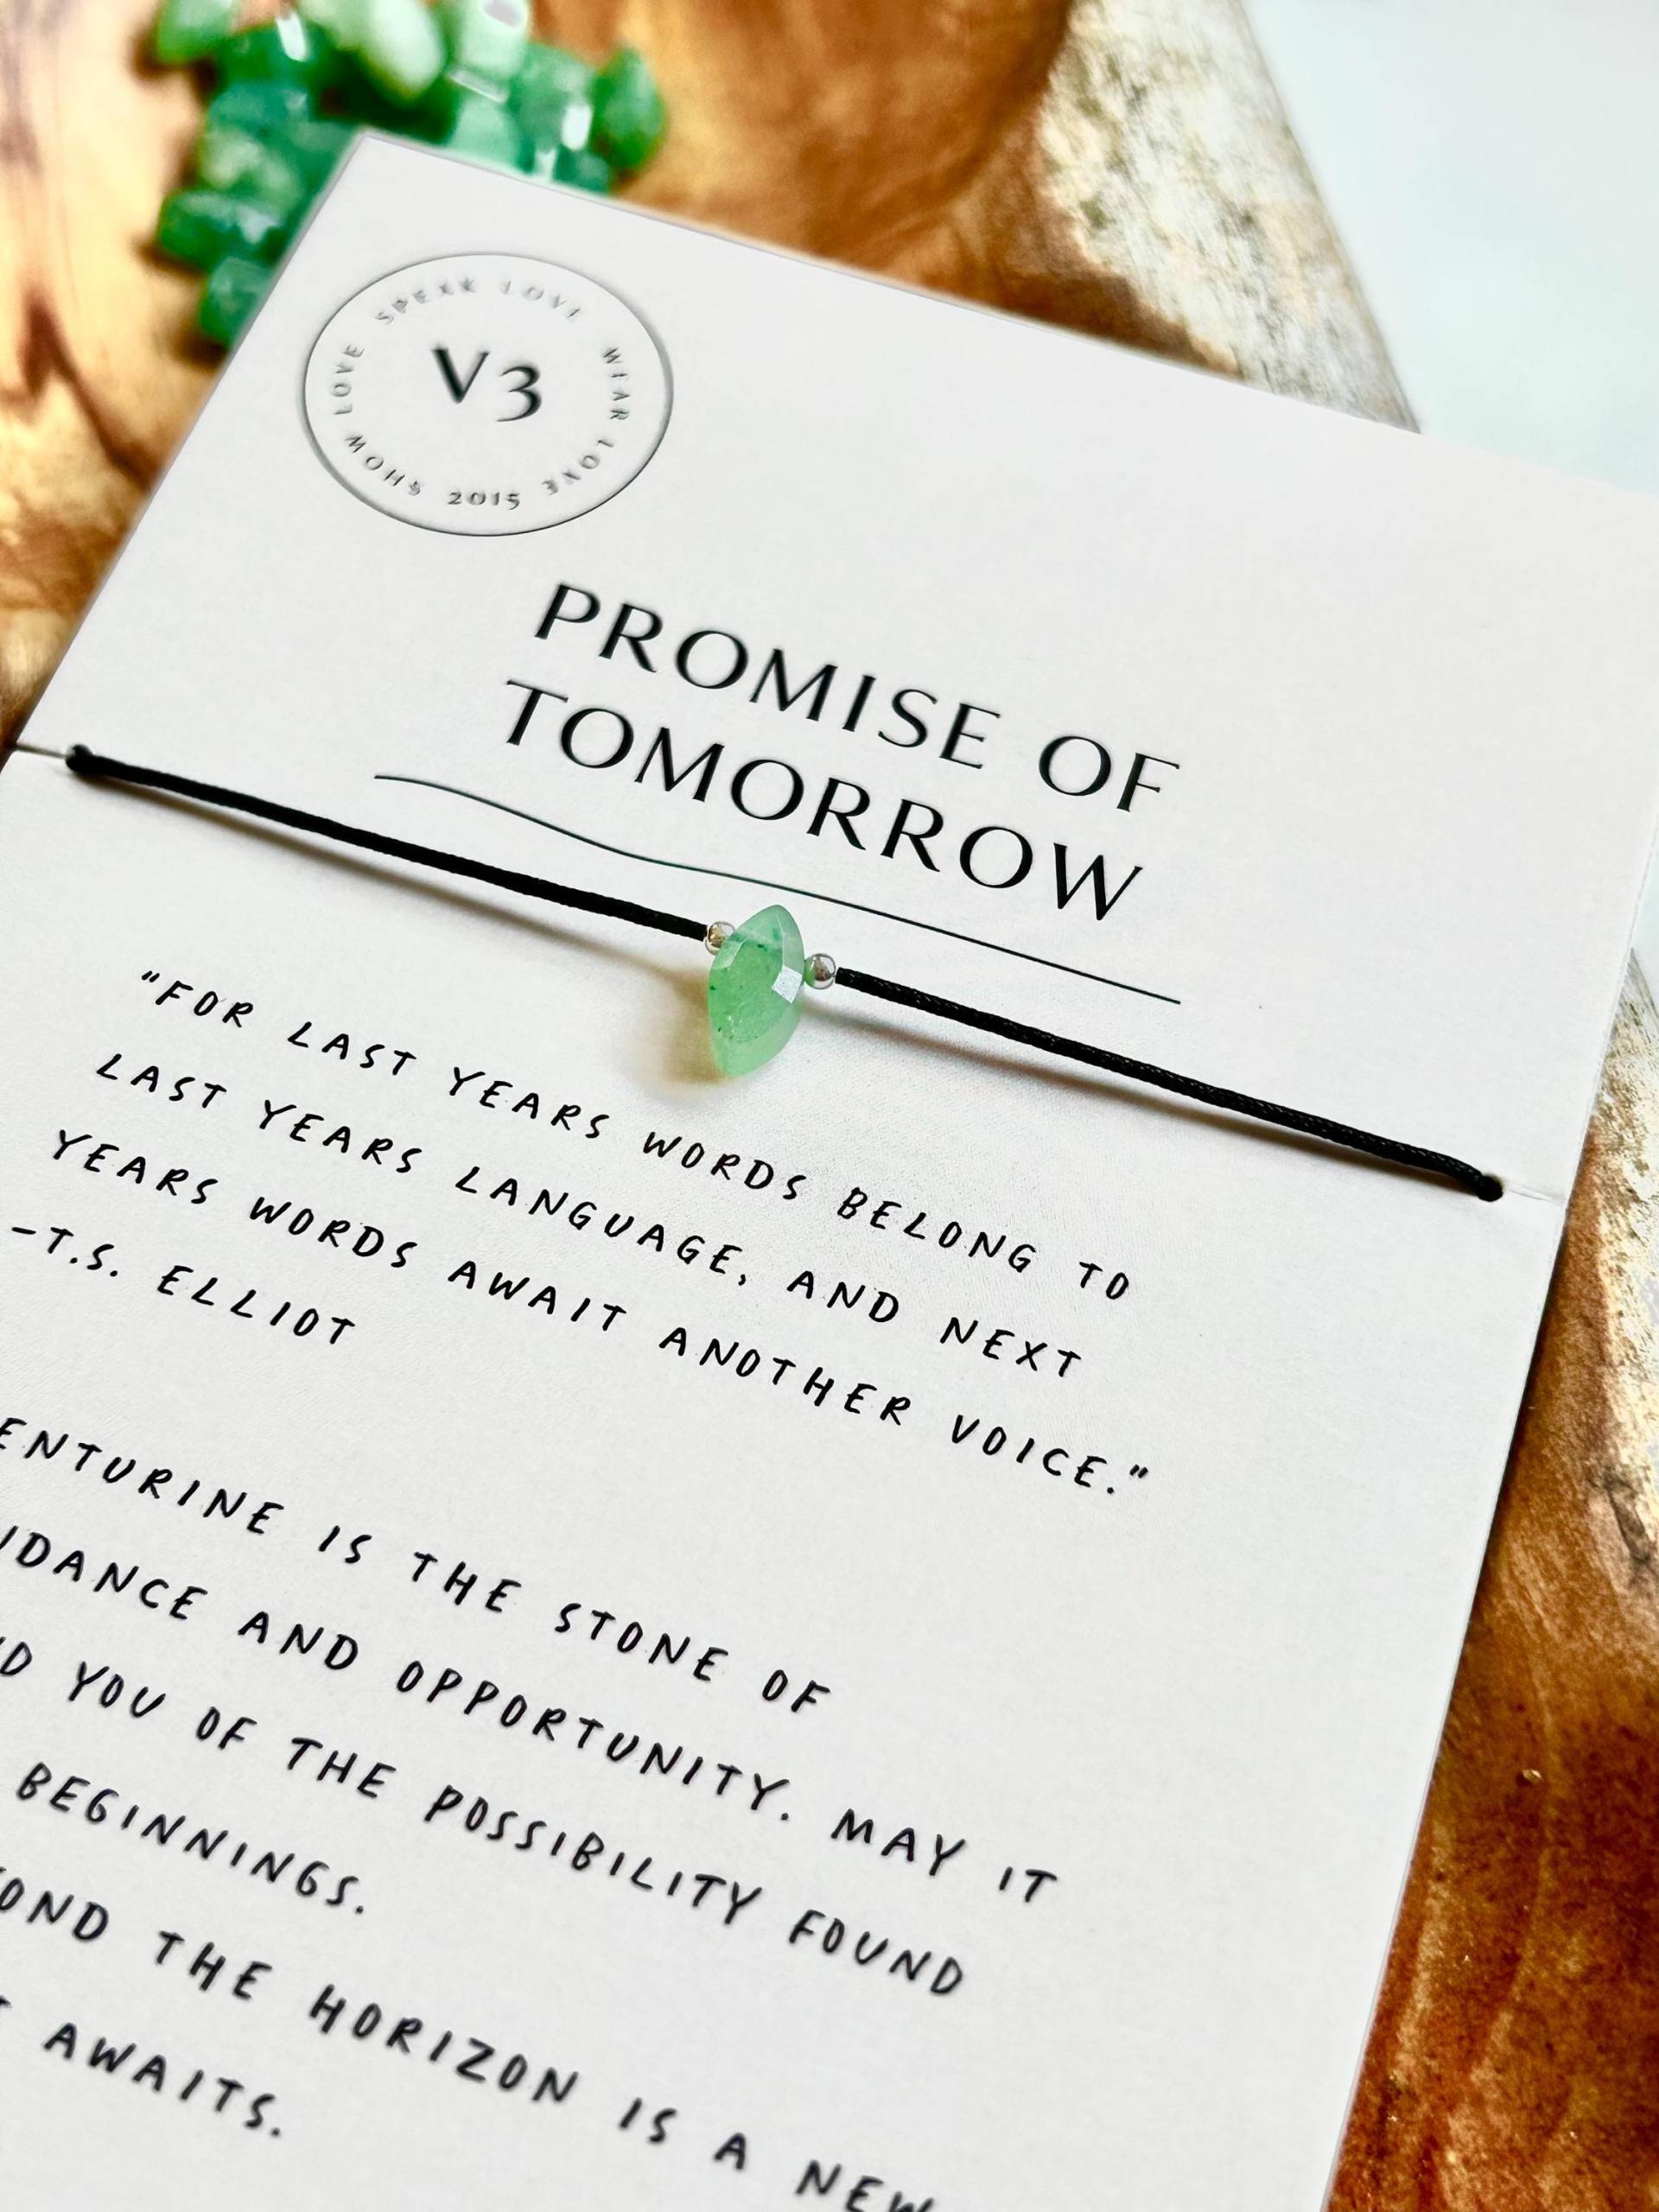 SPEAK LOVE WEAR LOVE 2015 SHOW LOVE
V3
PROMISE OF
TOMORROW
"FOR LAST YEARS WORDS BELONG TO
LAST YEARS LANGUAGE, AND NEXT
YEARS WORDS AWAIT ANOTHER VOICE."
-T.S. ELLIOT
ENTURINE IS THE STONE OF
IDANCE AND OPPORTUNITY. MAY IT
YOU OF THE POSSIBILITY FOUND
BEGINNINGS.
OND THE HORIZON IS A NEW
AWAITS.